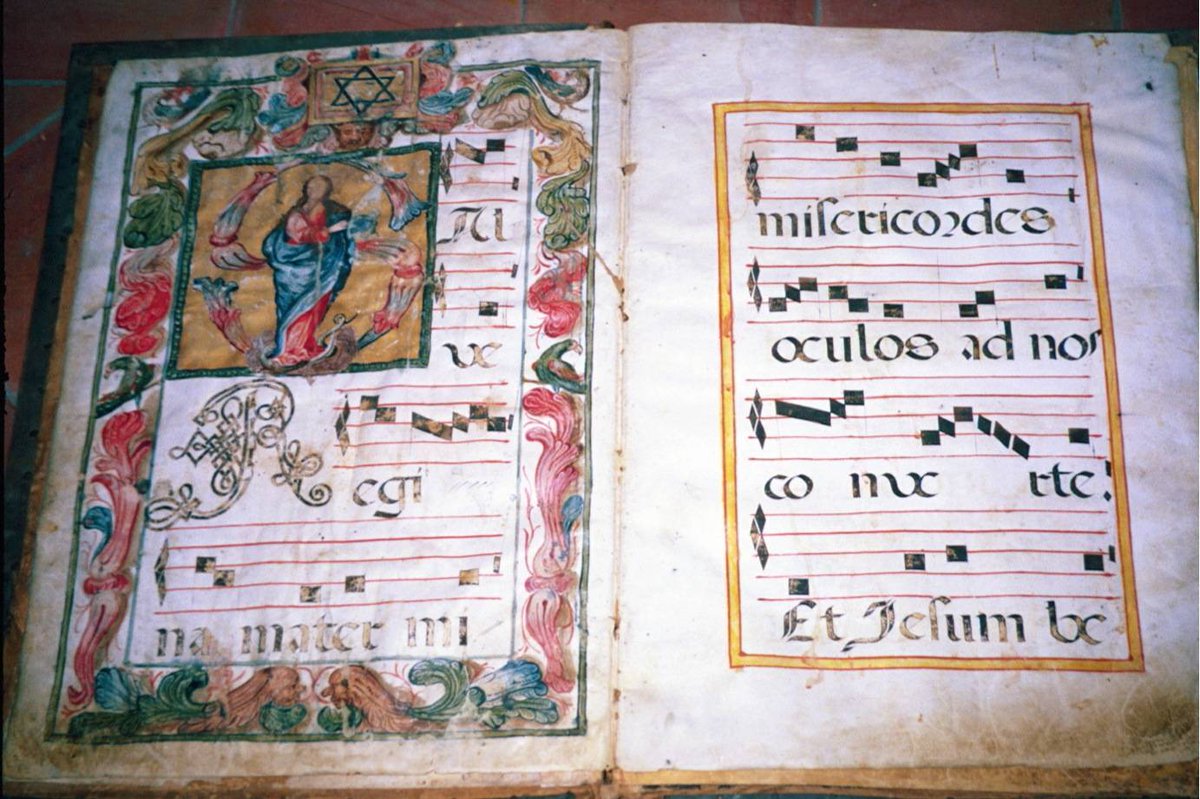 SAl
ve
Regi
na mater mi
miſericordes
oculos ad nos
co nve rte:
Et Jeſum be